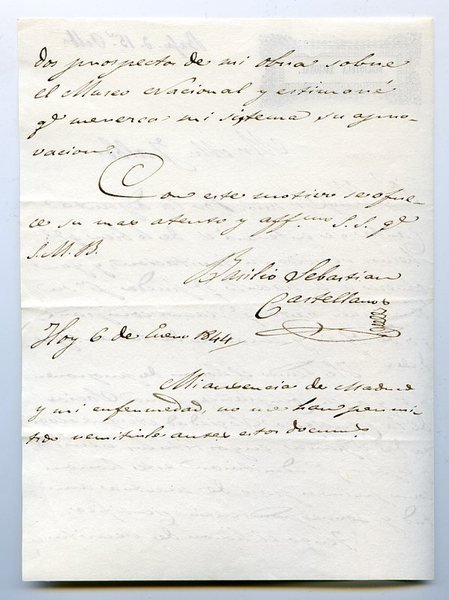 dos prospectos de mi obra sobre
el Museo Nacional y estimaré
qe merezca mi sistema su apro-
vacion.
Con este motivo se ofre-
ce su mas atento y affmo S.S. qe
S.M.B.
Basilio Sebastian
Castellanos
Hoy 6 de Enero 1844
Mi ausencia de Madrid
y mi enfermedad, no me han permi-
tido remitirle antes estos docums